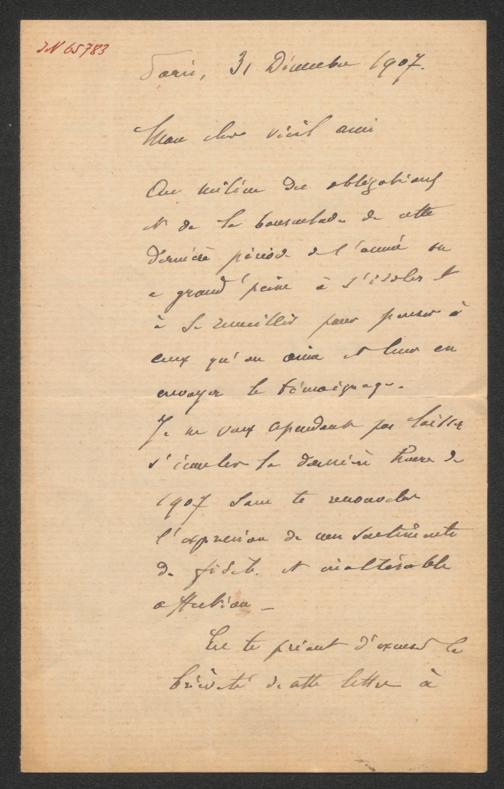 IN 65783
Paris, 31 Décembre 1907.
Mon cher vieil ami
Au milieu des obligations
et de la bousculade de cette
dernière période de l'année on
a grand'peine à s'isoler et
à se recueillir pour penser à
ceux qu'on aime et leur en
envoyer le témoignage.
Je ne veux cependant pas laisser
s'écouler la dernière heure de
1907 sans te renouveler
l'expression de mes sentiments
de fidèle et inaltérable
affection _
En te priant d'excuser la
brièveté de cette lettre à